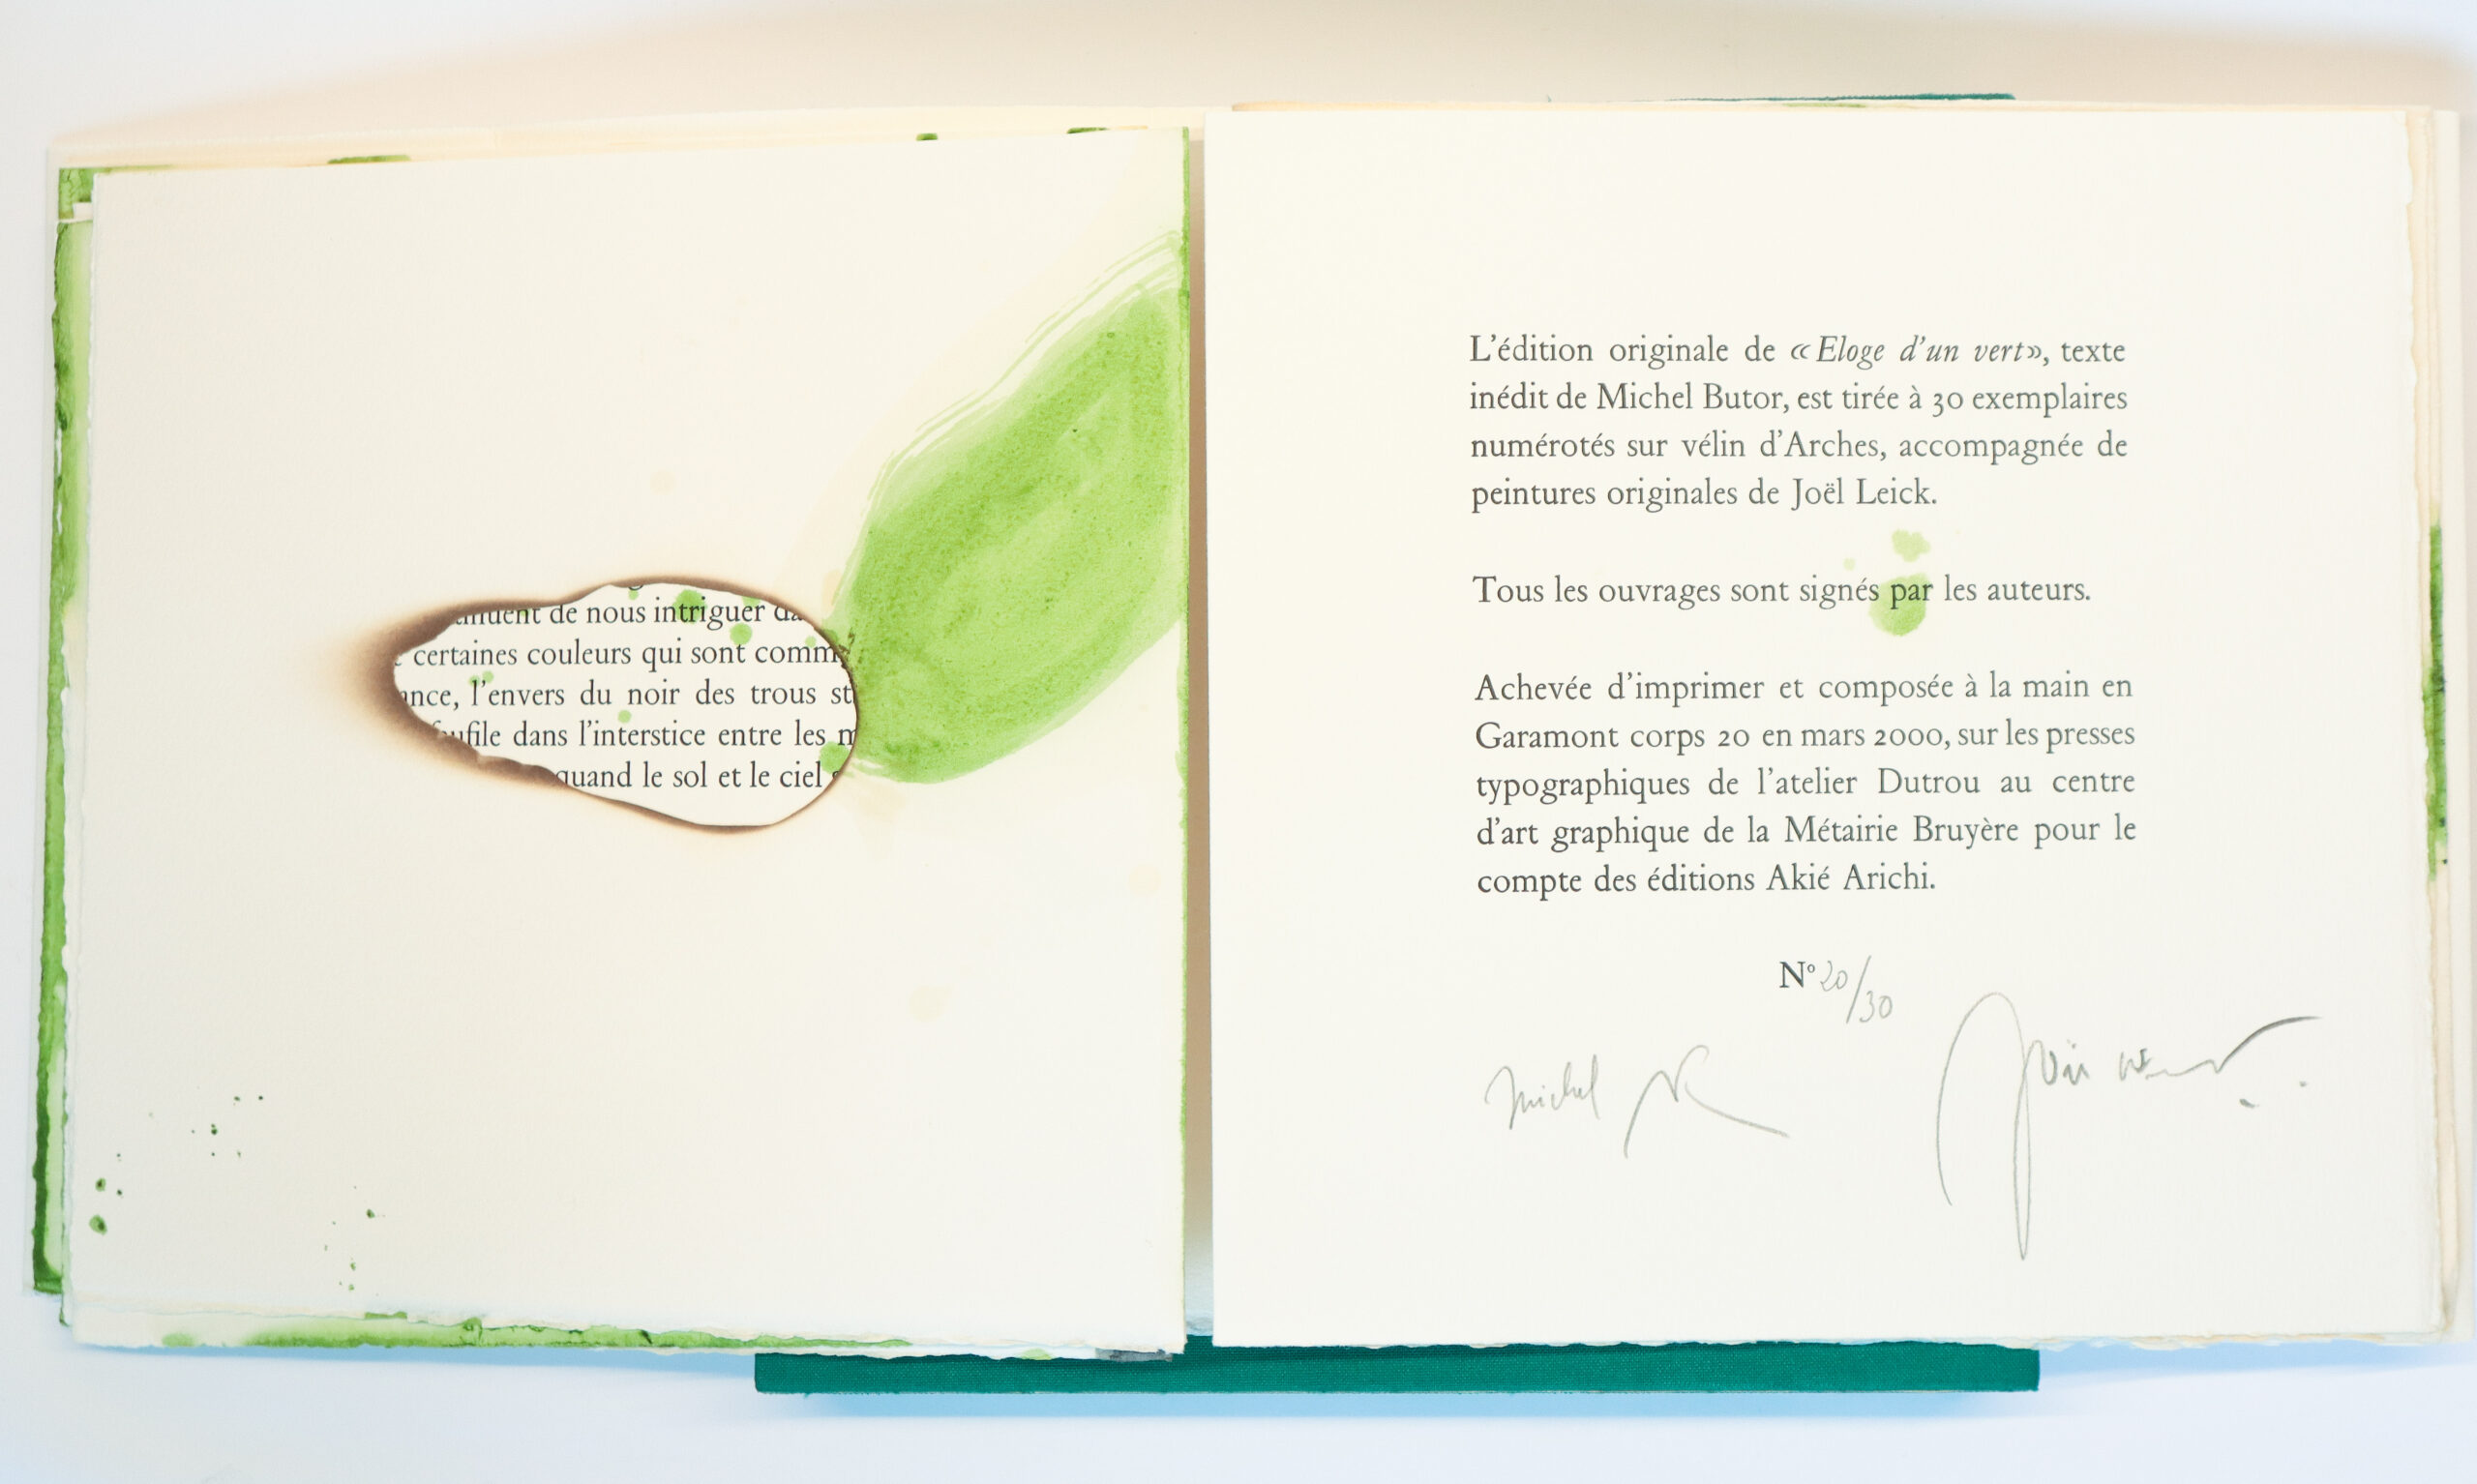 de nous intriguer
certaines couleurs qui sont
l'envers du noir des trous
dans l'interstice entre les
quand le sol et le ciel
L'édition originale de « Eloge d'un vert», texte
inédit de Michel Butor, est tirée à 30 exemplaires
numérotés sur vélin d'Arches, accompagnée de
peintures originales de Joël Leick.
Tous les ouvrages sont signés par les auteurs.
Achevée d'imprimer et composée à la main en
Garamont corps 20 en mars 2000, sur les presses
typographiques de l'atelier Dutrou au centre
d'art graphique de la Métairie Bruyère pour le
compte des éditions Akié Arichi.
Nº 20/30
Michel